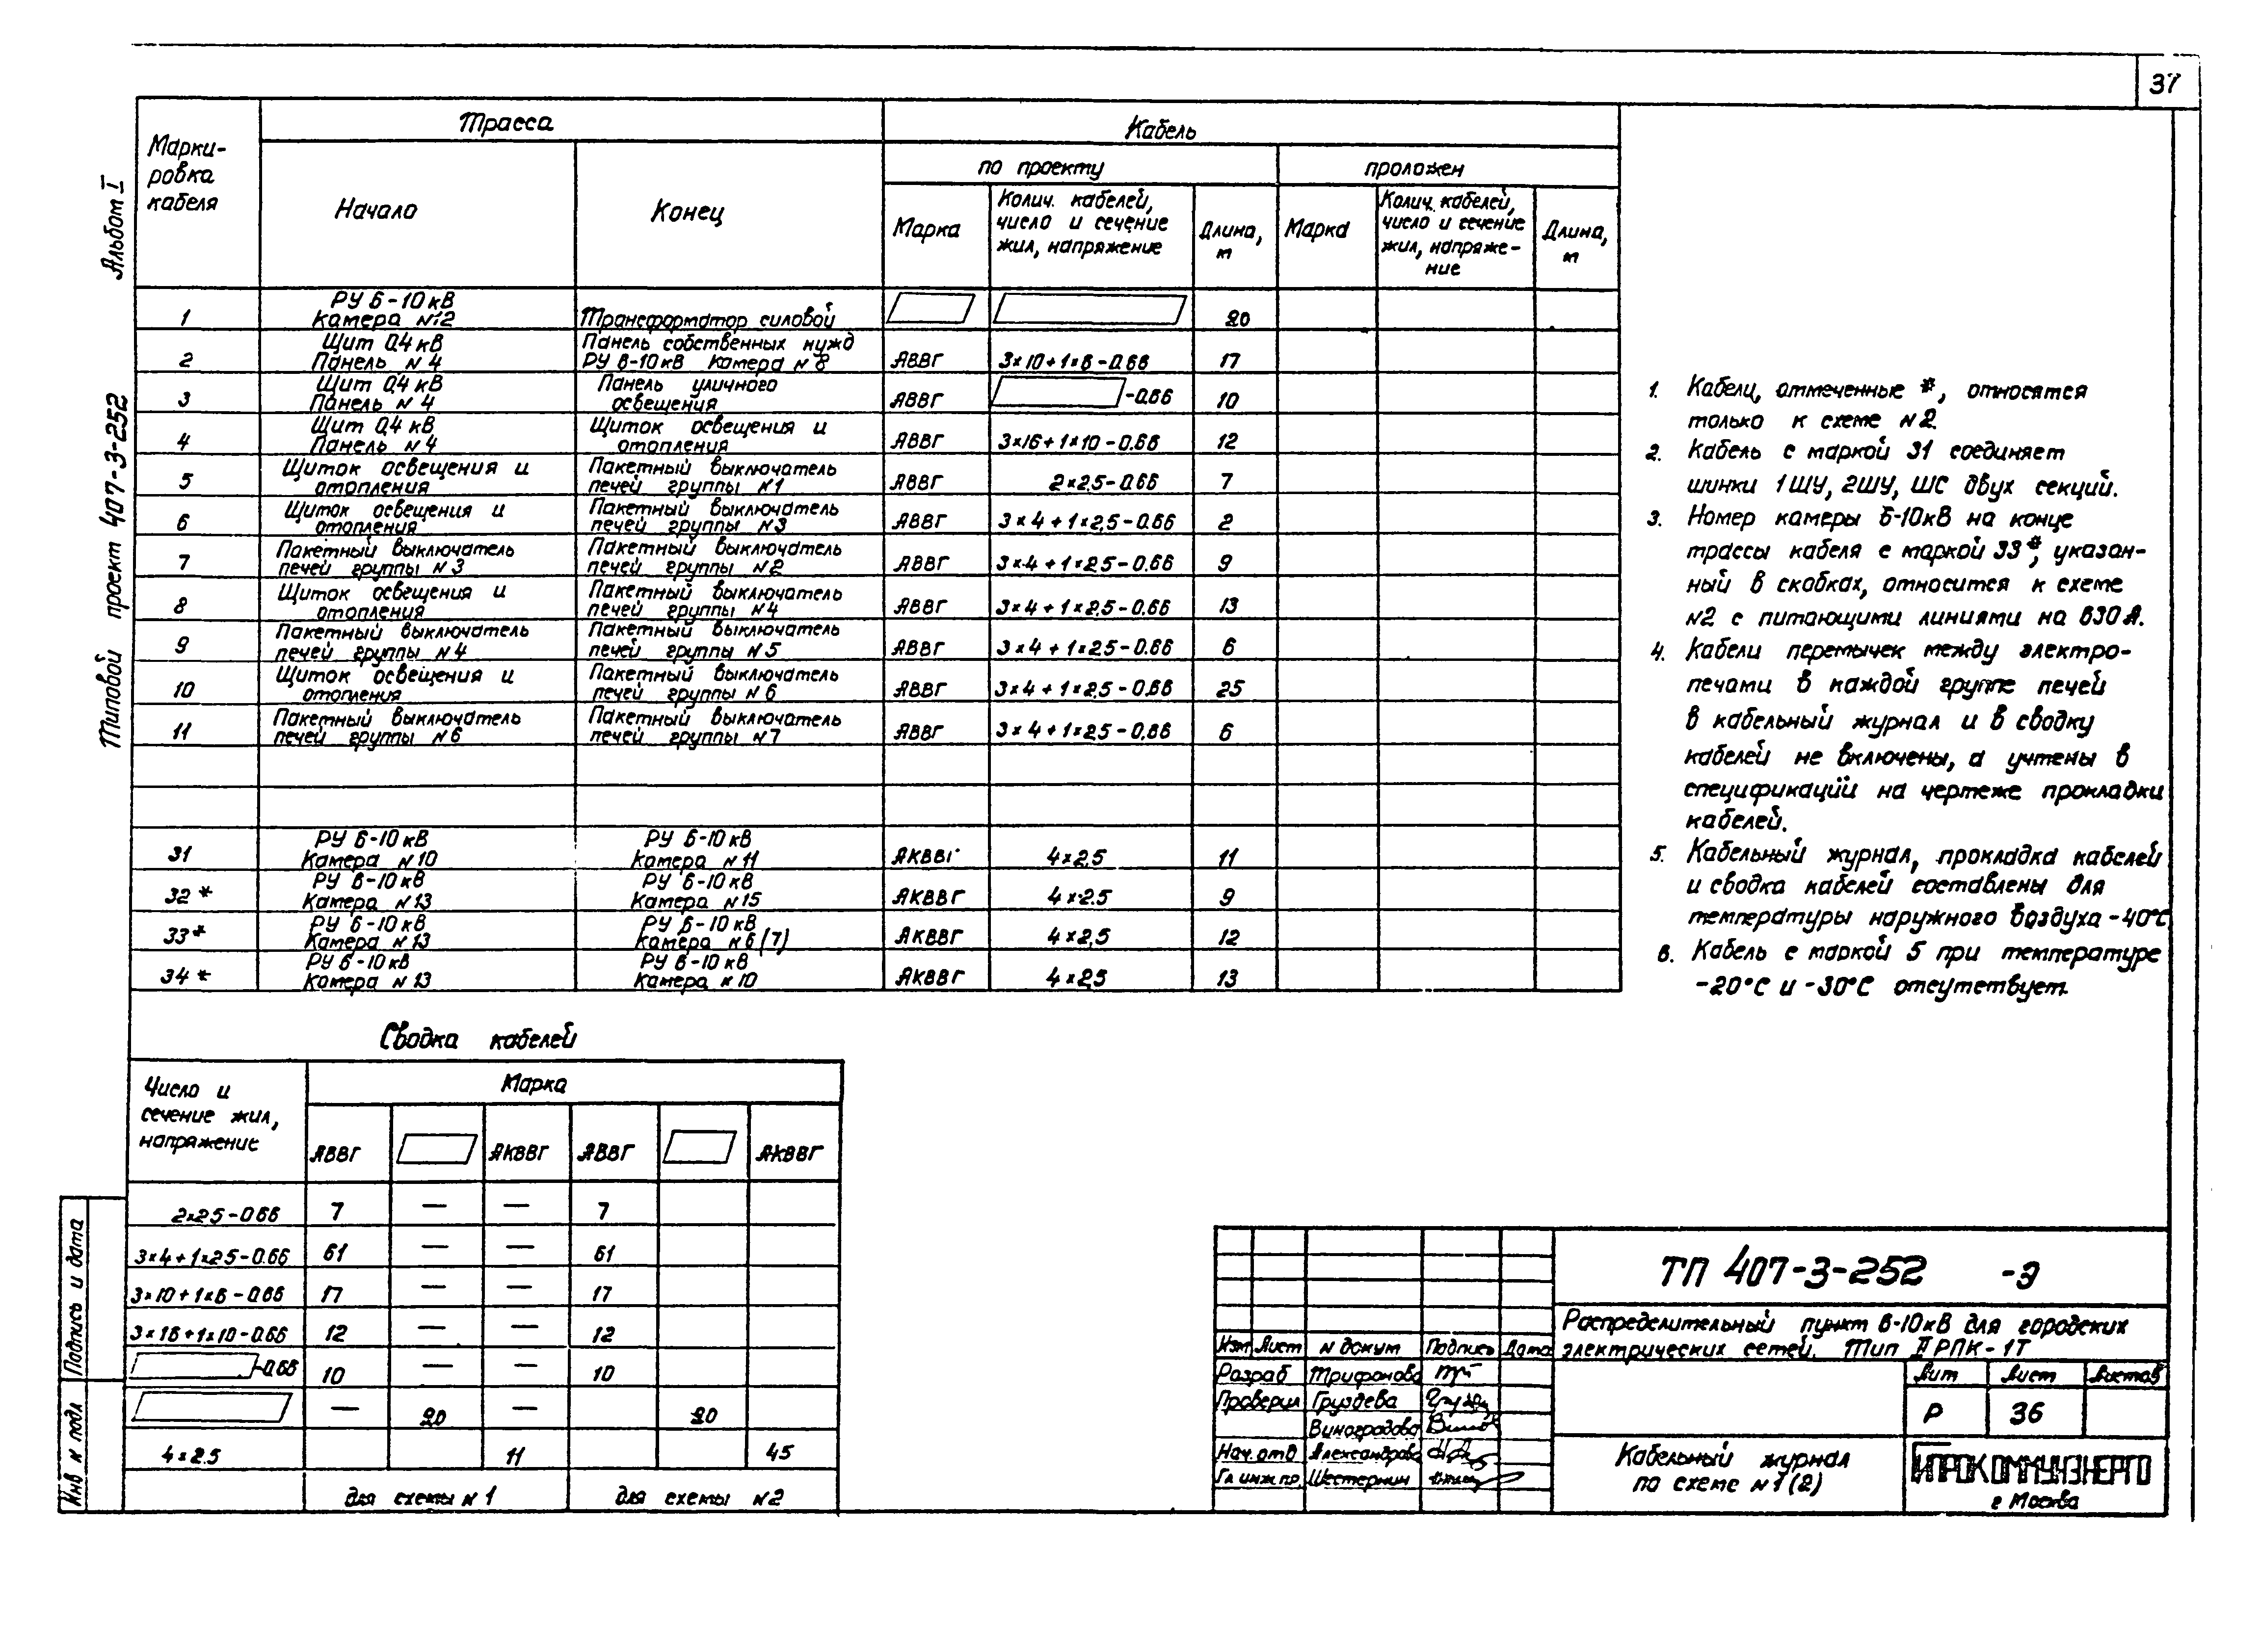 37
Альбом I
Типовой проект 407-3-252
Марки-
ровка
кабеля
Трасса
Кабель
по проекту
проложен
Начало
Конец
Марка
Колич. кабелей,
число и сечение
жил, напряжение
Длина,
м
Марка
Колич. кабелей,
число и сечение
жил, напряже-
ние
Длина,
м
1 РУ 6-10кВ Камера №12 Трансформатор силовой 20
2 Щит 0,4 кВ Панель N 4 Панель собственных нужд РУ 6-10кВ Камера N 8 АВВГ 3×10+1×6-0.66 17
3 Щит 0,4 кВ Панель N 4 Панель уличного освещения АВВГ -0.66 10
4 Щит 0,4 кВ Панель N 4 Щиток освещения и отопления АВВГ 3×16+1×10-0.66 12
5 Щиток освещения и отопления Пакетный выключатель печей группы N1 АВВГ 2×2.5-0.66 7
6 Щиток освещения и отопления Пакетный выключатель печей группы N3 АВВГ 3×4+1×2,5-0.66 2
7 Пакетный выключатель печей группы N3 Пакетный выключатель печей группы N2 АВВГ 3×4+1×2.5-0.66 9
8 Щиток освещения и отопления Пакетный выключатель печей группы N4 АВВГ 3×4+1×2,5-0.66 13
9 Пакетный выключатель печей группы N4 Пакетный выключатель печей группы N5 АВВГ 3×4+1×2.5-0.66 6
10 Щиток освещения и отопления Пакетный выключатель печей группы N6 АВВГ 3×4+1×2.5-0.66 25
11 Пакетный выключатель печей группы N6 Пакетный выключатель печей группы N7 АВВГ 3×4+1×2.5-0.66 6
31 РУ 6-10кВ Камера N10 РУ 6-10кВ Камера N11 АКВВГ 4×2,5 11
32* РУ 6-10кВ Камера N13 РУ 6-10кВ Камера N15 АКВВГ 4×2.5 9
33* РУ 6-10кВ Камера N13 РУ 6-10кВ Камера N6(7) АКВВГ 4×2,5 12
34* РУ 6-10кВ Камера N13 РУ 6-10кВ Камера N10 АКВВГ 4×2,5 13
1. Кабели, отмеченные *, относятся
только к схеме N2.
2. Кабель с маркой 31 соединяет
шинки 1ШУ, 2ШУ, ШС двух секций.
3. Номер камеры 6-10кВ на конце
трассы кабеля с маркой 33*, указан-
ный в скобках, относится к схеме
N2 с питающими линиями на 630А.
4. Кабели перемычек между электро-
печами в каждой группе печей
в кабельный журнал и в сводку
кабелей не включены, а учтены в
спецификаций на чертеже прокладки
кабелей.
5. Кабельный журнал, прокладка кабелей
и сводка кабелей составлены для
температуры наружного воздуха -40°С
6. Кабель с маркой 5 при температуре
-20°С и -30°С отсутствует.
Сводка кабелей
Число и
сечение жил,
напряжение
Марка
АВВГ АКВВГ АВВГ АКВВГ
2×2.5-0.66 7 — — 7
3×4+1×2.5-0.66 61 — — 61
3×10+1×6-0.66 17 — — 17
3×16+1×10-0.66 12 — — 12
-0.66 10 — — 10
— 20 — 20
4×2.5 11 45
для схемы N 1 для схемы N2
Подпись и дата
Инв N подл
ТП 407-3-252 -Э
Распределительный пункт 6-10кВ для городских
электрических сетей. Тип II РПК-1Т
Изм Лист N докум Подпись Дата
Разраб Трифонова
Проверил Груздева
Виноградова
Нач. отд Александрова
Гл инж пр. Шестернин
Лит Лист Листов
Р 36
Кабельный журнал
по схеме N1(2)
ГИПРОКОММУНЭНЕРГО
г Москва